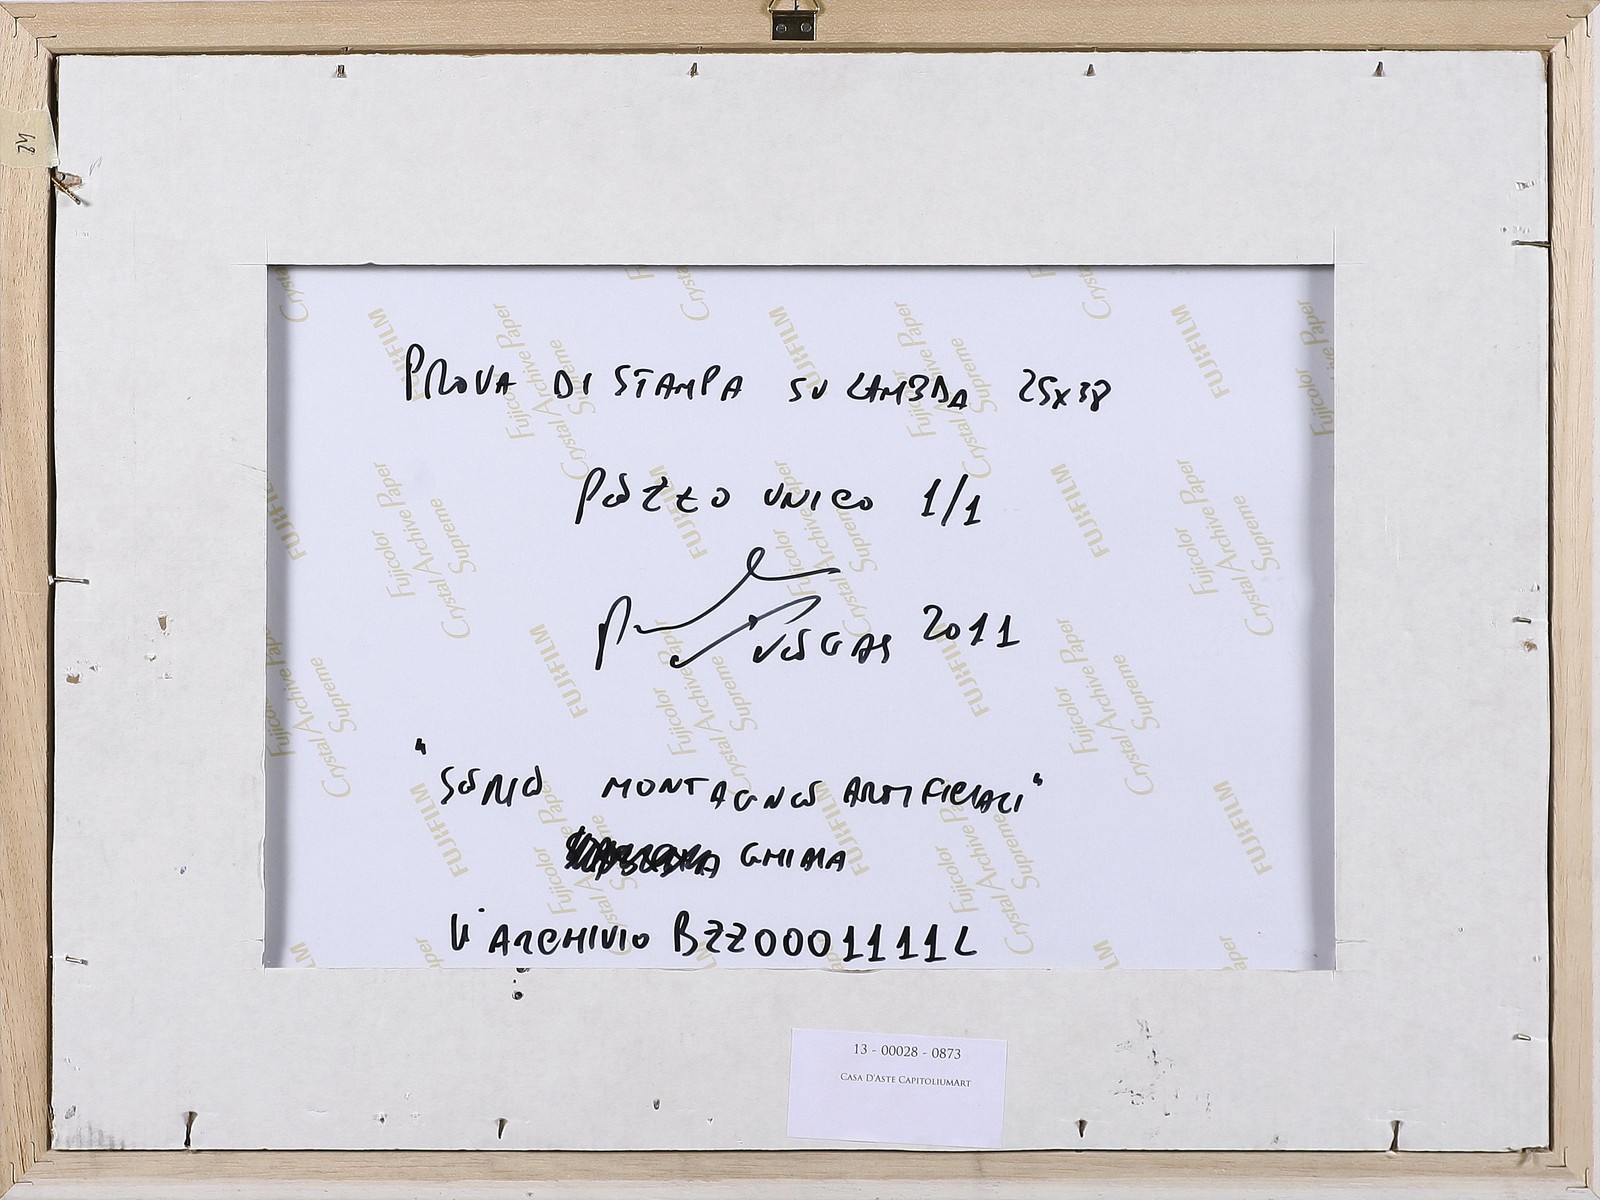 PROVA DI STAMPA SU LAMBDA 25x38
PEZZO UNICO 1/1
VEGAS 2011
"SERIE MONTAGNE ARTIFICIALI"
GHIAIA
N° ARCHIVIO BZZ0001111L
13 - 00028 - 0873
CASA D'ASTE CAPITOLIUMART
FUJIFILM
Fujicolor
Crystal Archive Paper
Supreme